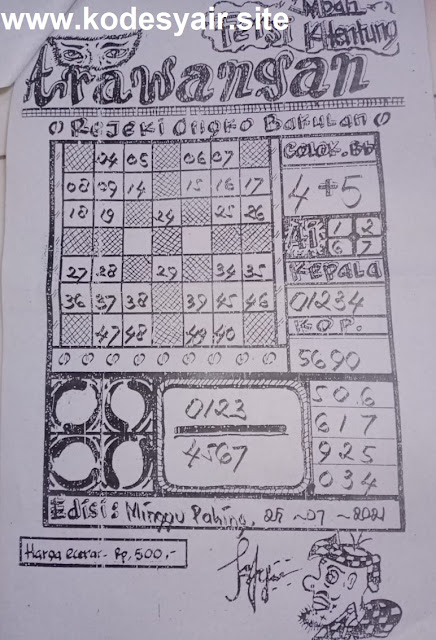 www.kodesyair.site
Mbah
Trawangan
Rejeki Onoko Bakulan
04 05 06 07
08 09 14 15 16 17
18 19 24 25 26
27 28 29 34 35
36 37 38 39 45 46
47 48 49 40
COLOK.BB
4+5
AI
1 2
6 7
KEPALA
01234
KOP.
5690
0123
4567
506
617
925
034
Edisi: Minggu Pahing, 25-07-2021
Harga eceran- Rp, 500,-